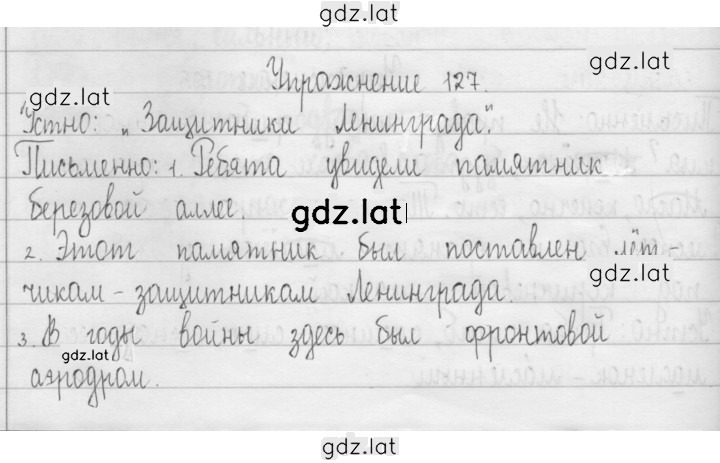 gdz.lat
Упражнение 127.
gdz.lat
gdz.lat
Устно: „Защитники Ленинграда".
Письменно: 1. Ребята увидели памятник
березовой аллее.
gdz.lat
2. Этот памятник был поставлен лёт-
gdz.lat
чикам - защитникам Ленинграда.
3. В годы войны здесь был фронтовой
gdz.lat
аэродром.
gdz.lat